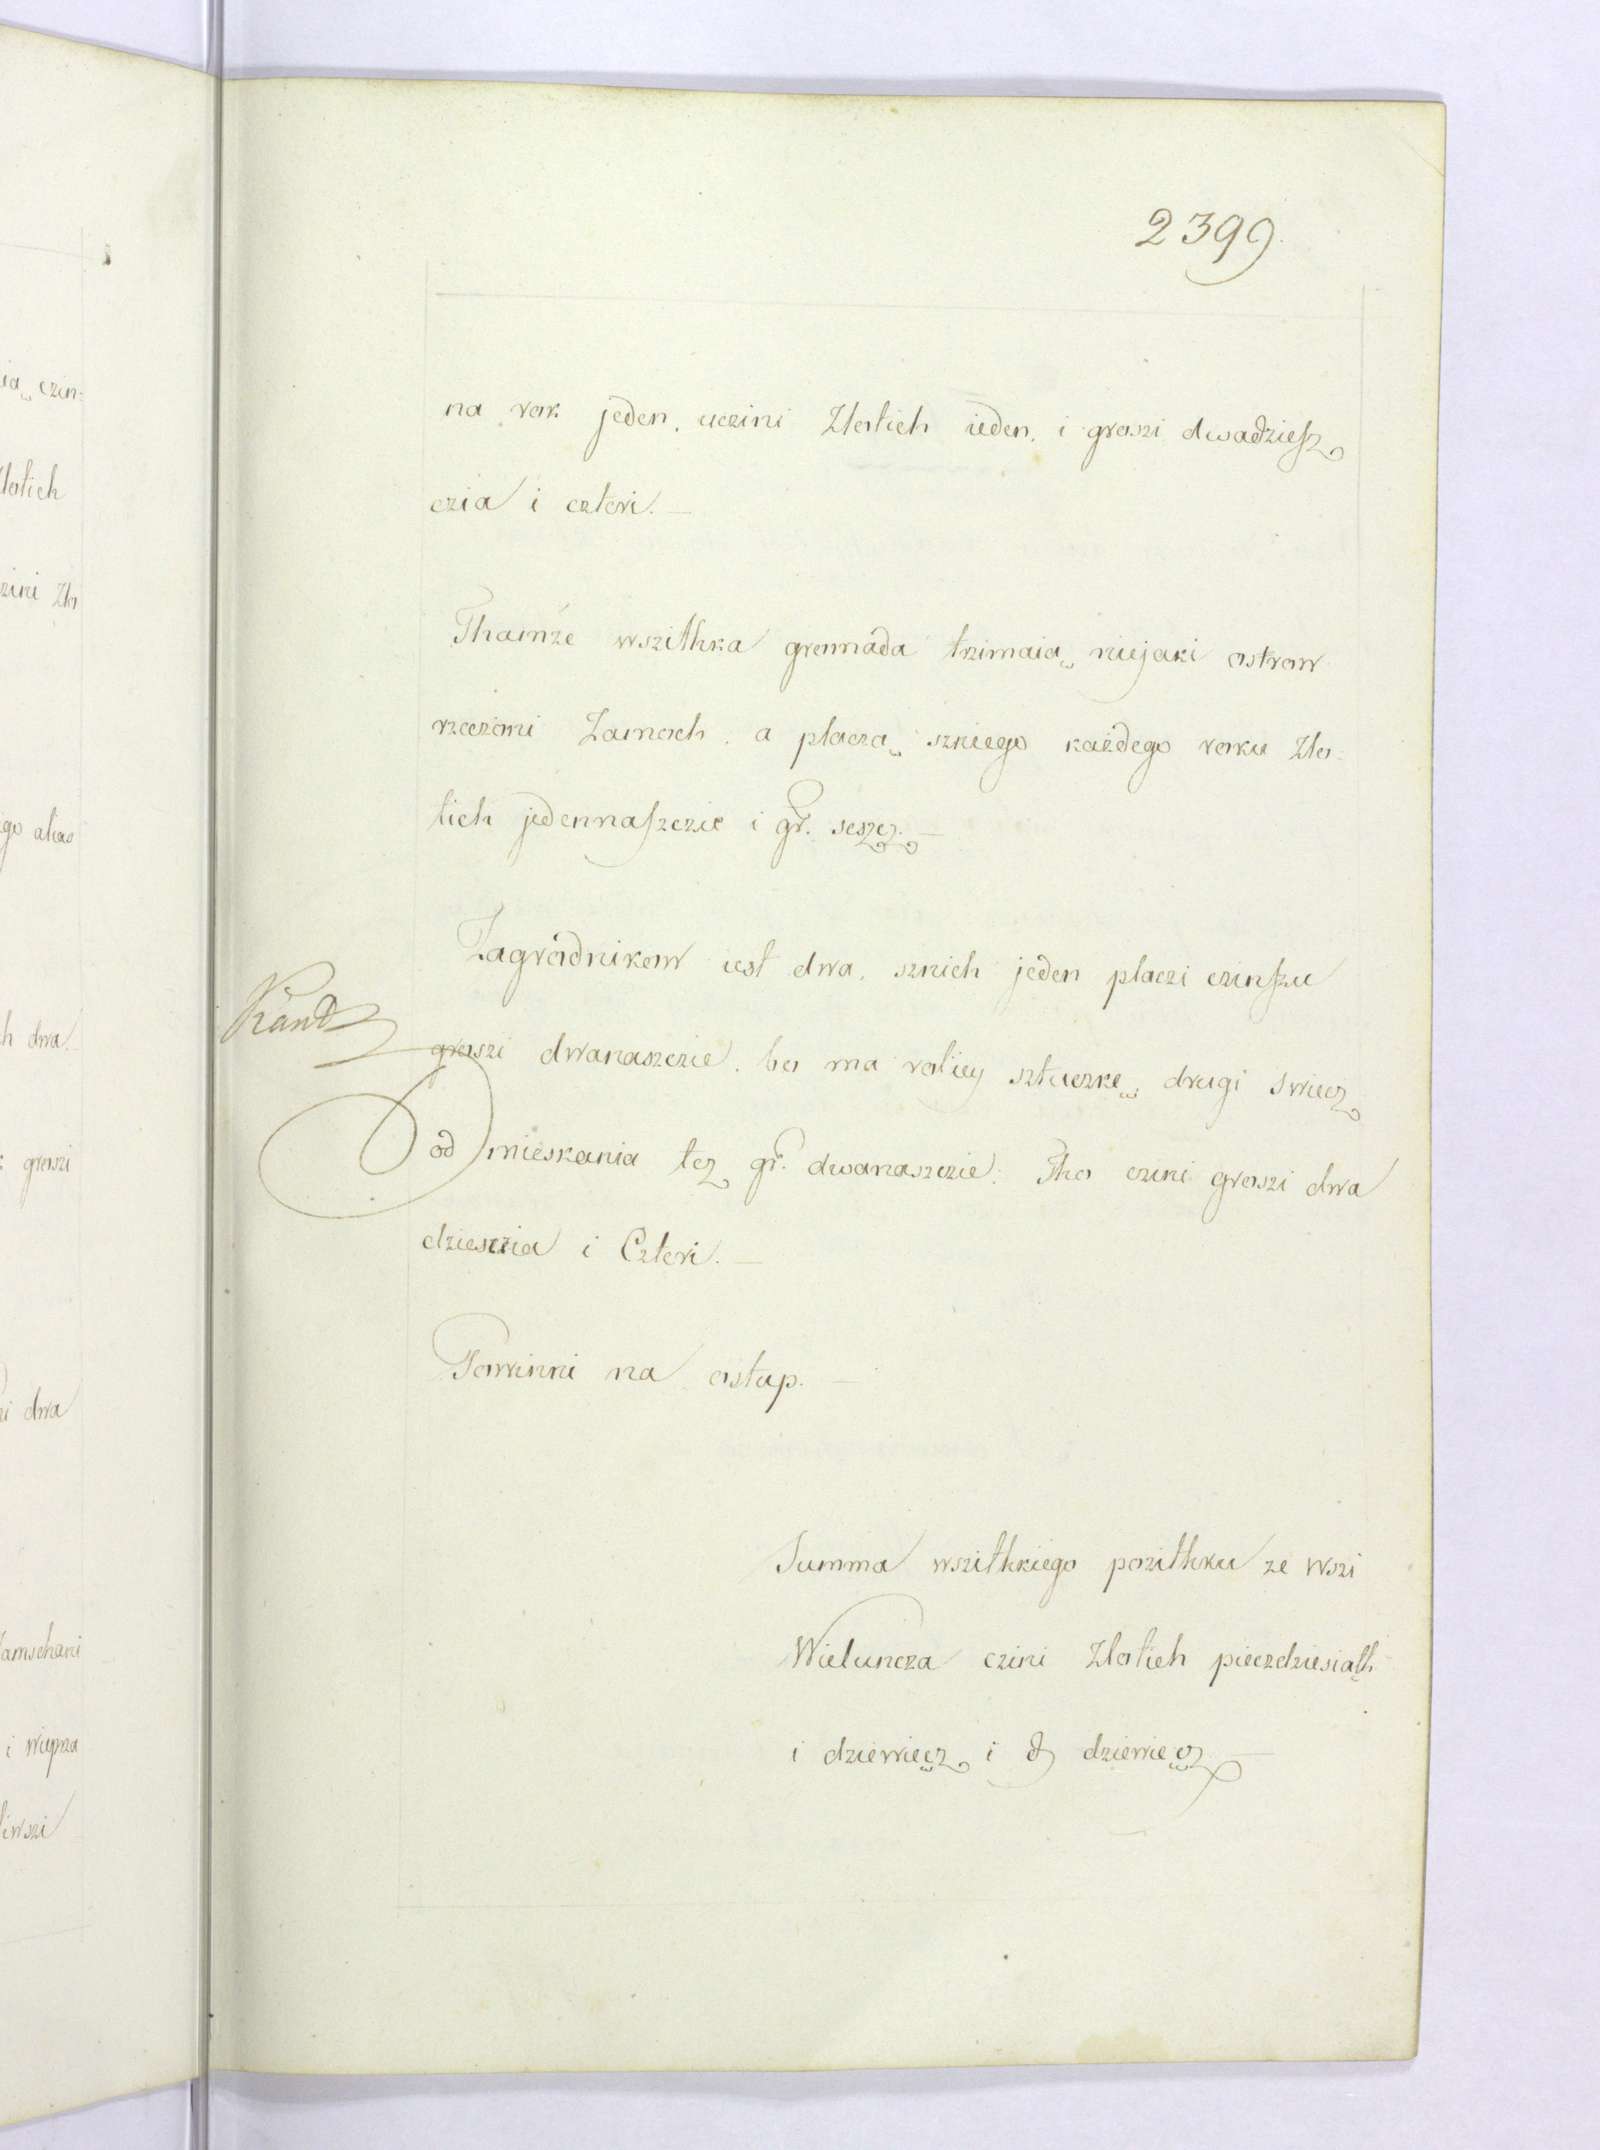 2399
na rok jeden, uczini Złotich ieden, i groszi dwadziesz
czia i czteri. —
Thamże wszithka gromada trzimaią niejaki ostrow
rzeczoni Zamoch, a płaczą szniego każdego roku Zło-
tich jedennaszczie i gr. sescz. —
Zagrodnikow iest dwa, sznich jeden płaczi czinszu
groszi dwanaszczie, bo ma roliey sztuczkę, drugi Swiecz
od mieskania tez gr. dwanaszczie. Tho czini groszi dwa
dziesczia i Czteri. —
Powinni na ostup. —
Summa wszithkiego pozithku ze wszi
Wieluncza czini Złotich pieczdziesiąth
i dziewięcz i gr dziewięcz. —
ią czin=
Złotich
czini Zło
go alias
ch dwa.
groszi
i dwa
Zamschani
i wieprza